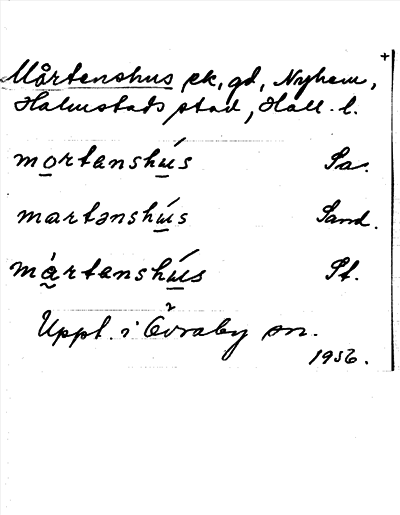 Mårtenshus pk, gd, Nyhem,
Halmstads stad, Hall. l.
mortanshús Sa.
martənshús Sand.
mártanshús St.
Uppt. i Övraby sn.
1956.